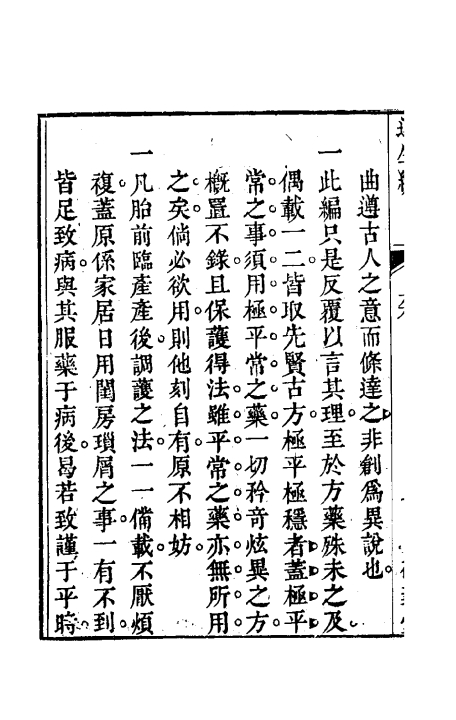 曲遵古人之意而條達之非創為異說也
一此編只是反覆以言其理至於方藥殊未之及
偶載一二皆取先賢古方極平極穩者蓋極平
常之事須用極平常之藥一切矜奇炫異之方
概置不錄且保護得法雖平常之藥亦無所用
之矣倘必欲用則他刻自有原不相妨
一凡胎前臨產產後調護之法一一備載不厭煩
複蓋原係家居日用閨房瑣屑之事一有不到
皆足致病與其服藥于病後曷若致謹于平時